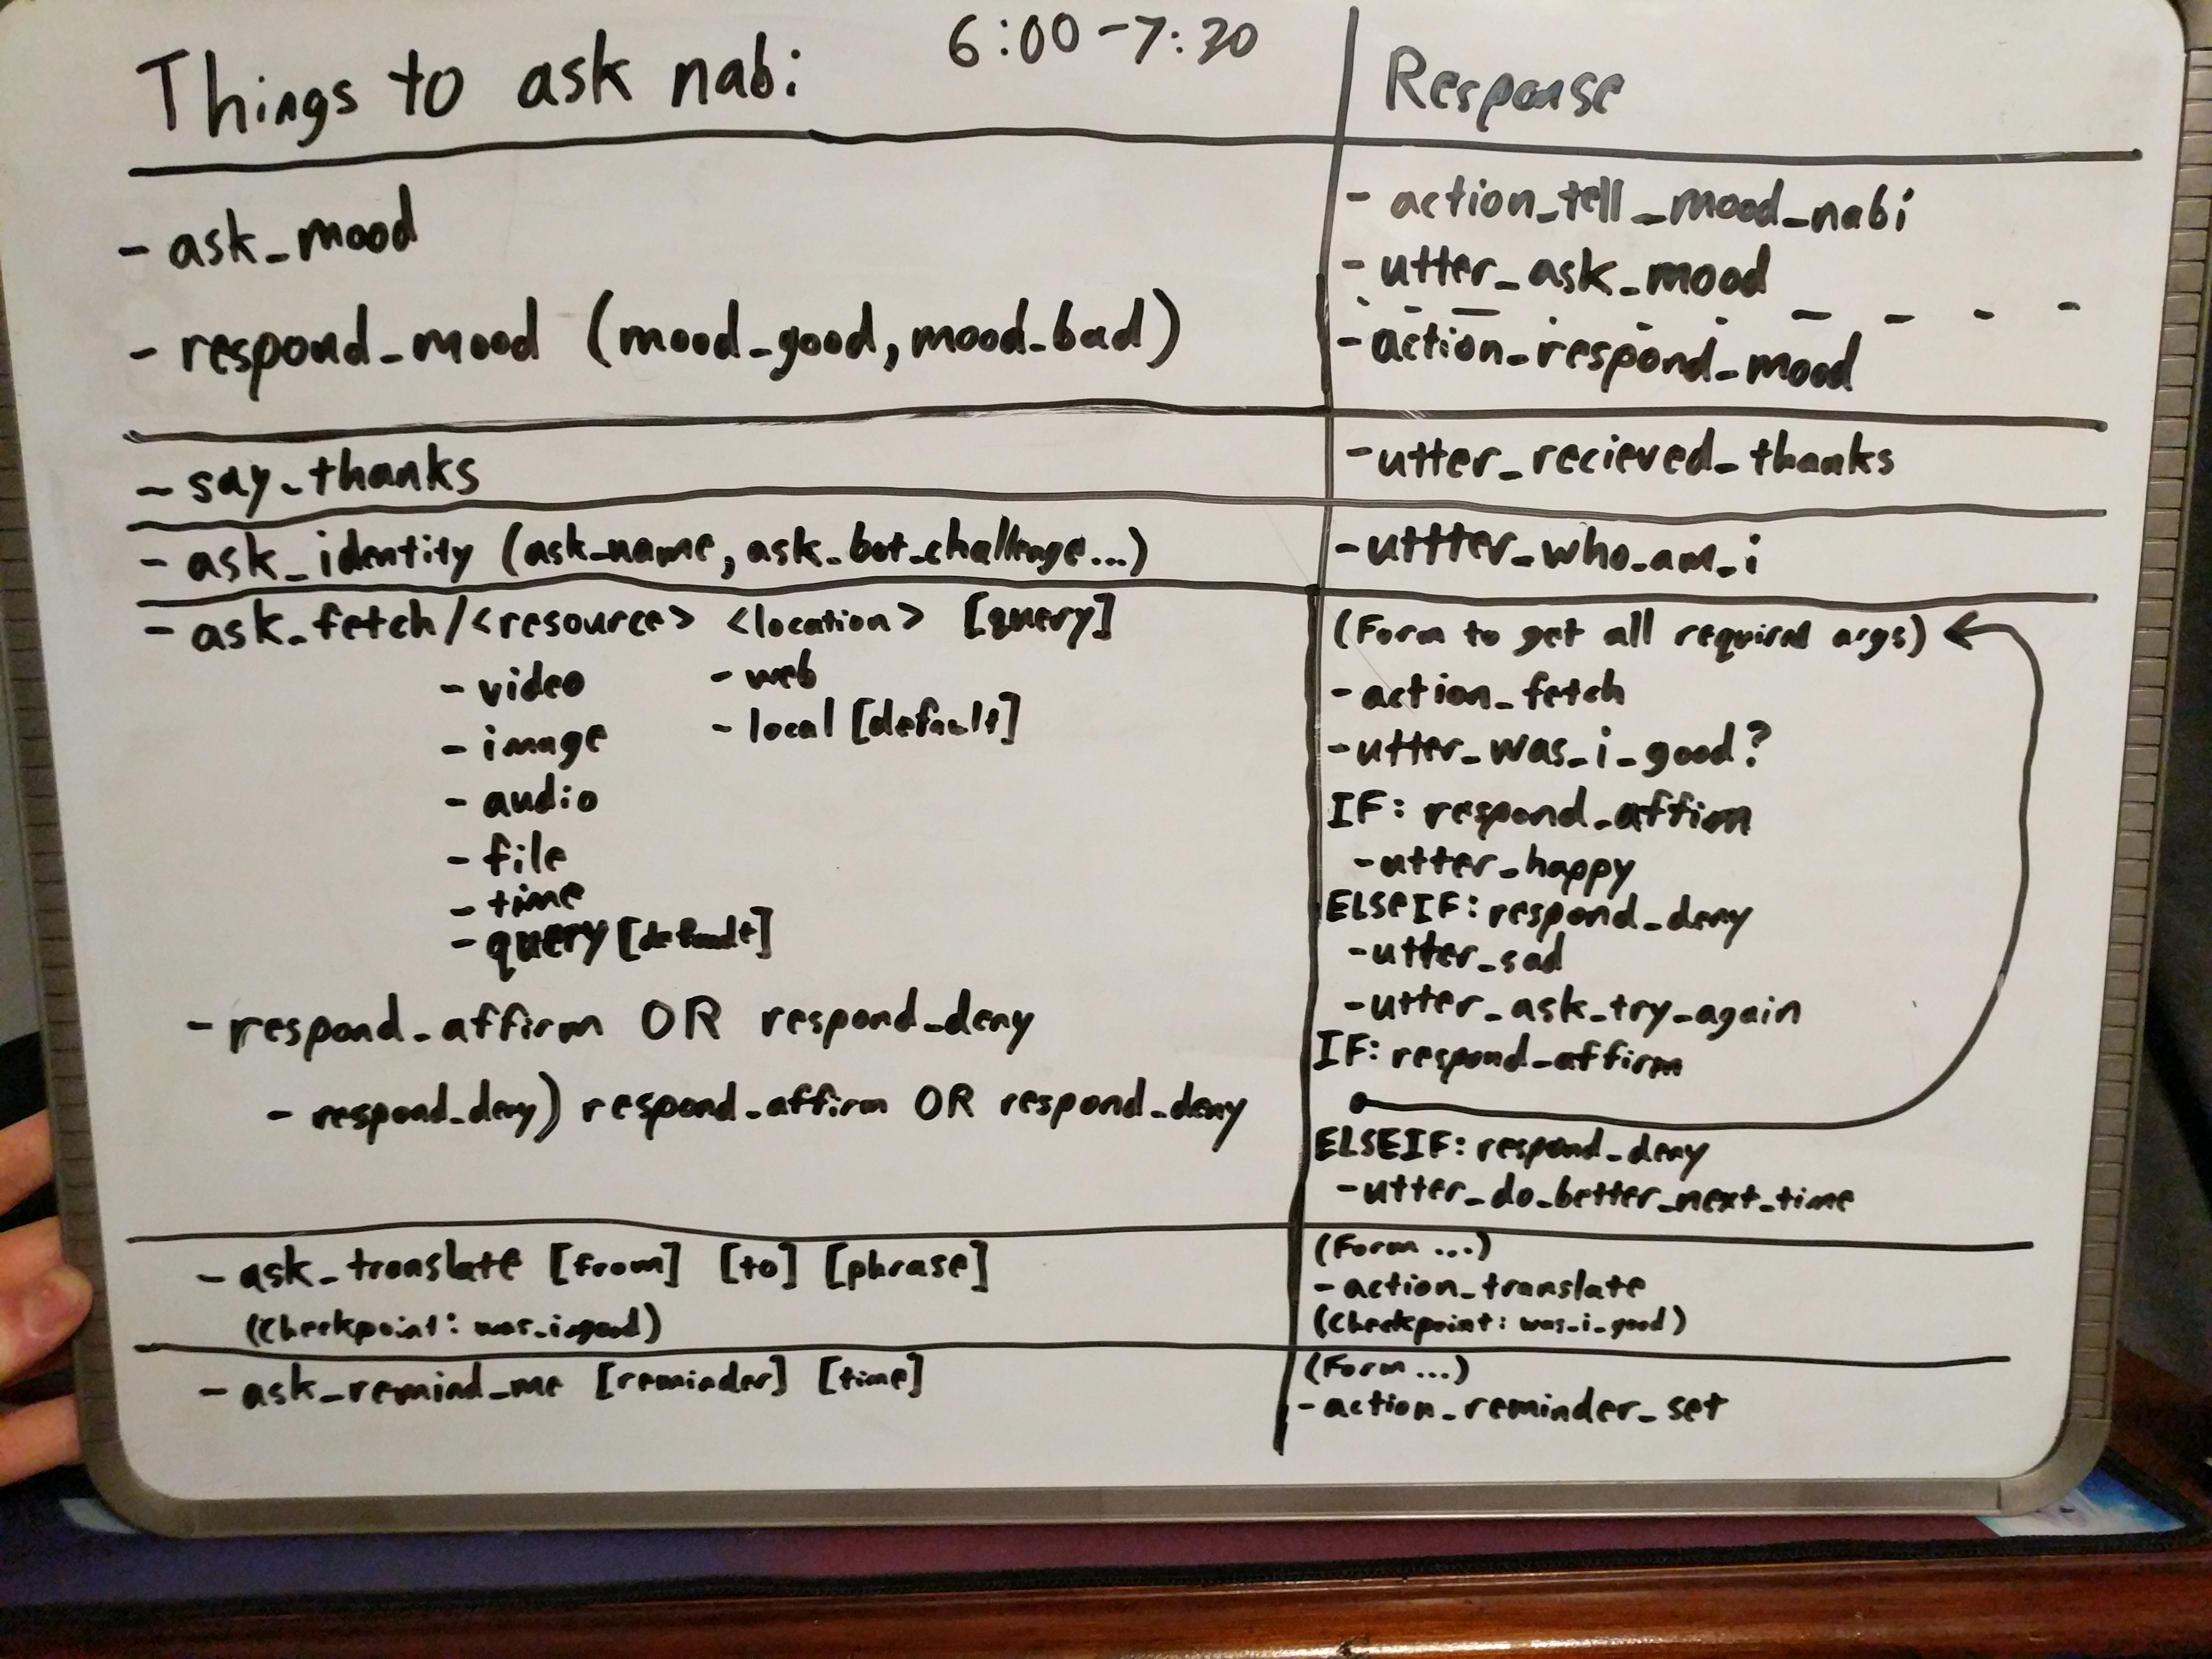 Things to ask nabi
6:00-7:30
Response
- ask_mood
- respond_mood (mood_good, mood_bad)
- action_tell_mood_nabi
- utter_ask_mood
- action_respond_mood
- say_thanks
- utter_recieved_thanks
- ask_identity (ask_name, ask_bot_challenge...)
- uttter_who_am_i
- ask_fetch/<resource> <location> [query]
- video
- image
- audio
- file
- time
- query [default]
- web
- local [default]
- respond_affirm OR respond_deny
- respond_deny) respond_affirm OR respond_deny
(Form to get all required args)
- action_fetch
- utter_was_i_good?
IF: respond_affirm
- utter_happy
ELSEIF: respond_deny
- utter_sad
- utter_ask_try_again
IF: respond_affirm
ELSEIF: respond_deny
- utter_do_better_next_time
- ask_translate [from] [to] [phrase]
(Checkpoint: was_i_good)
(Form ...)
- action_translate
(Checkpoint: was_i_good)
- ask_remind_me [reminder] [time]
(Form ...)
- action_reminder_set